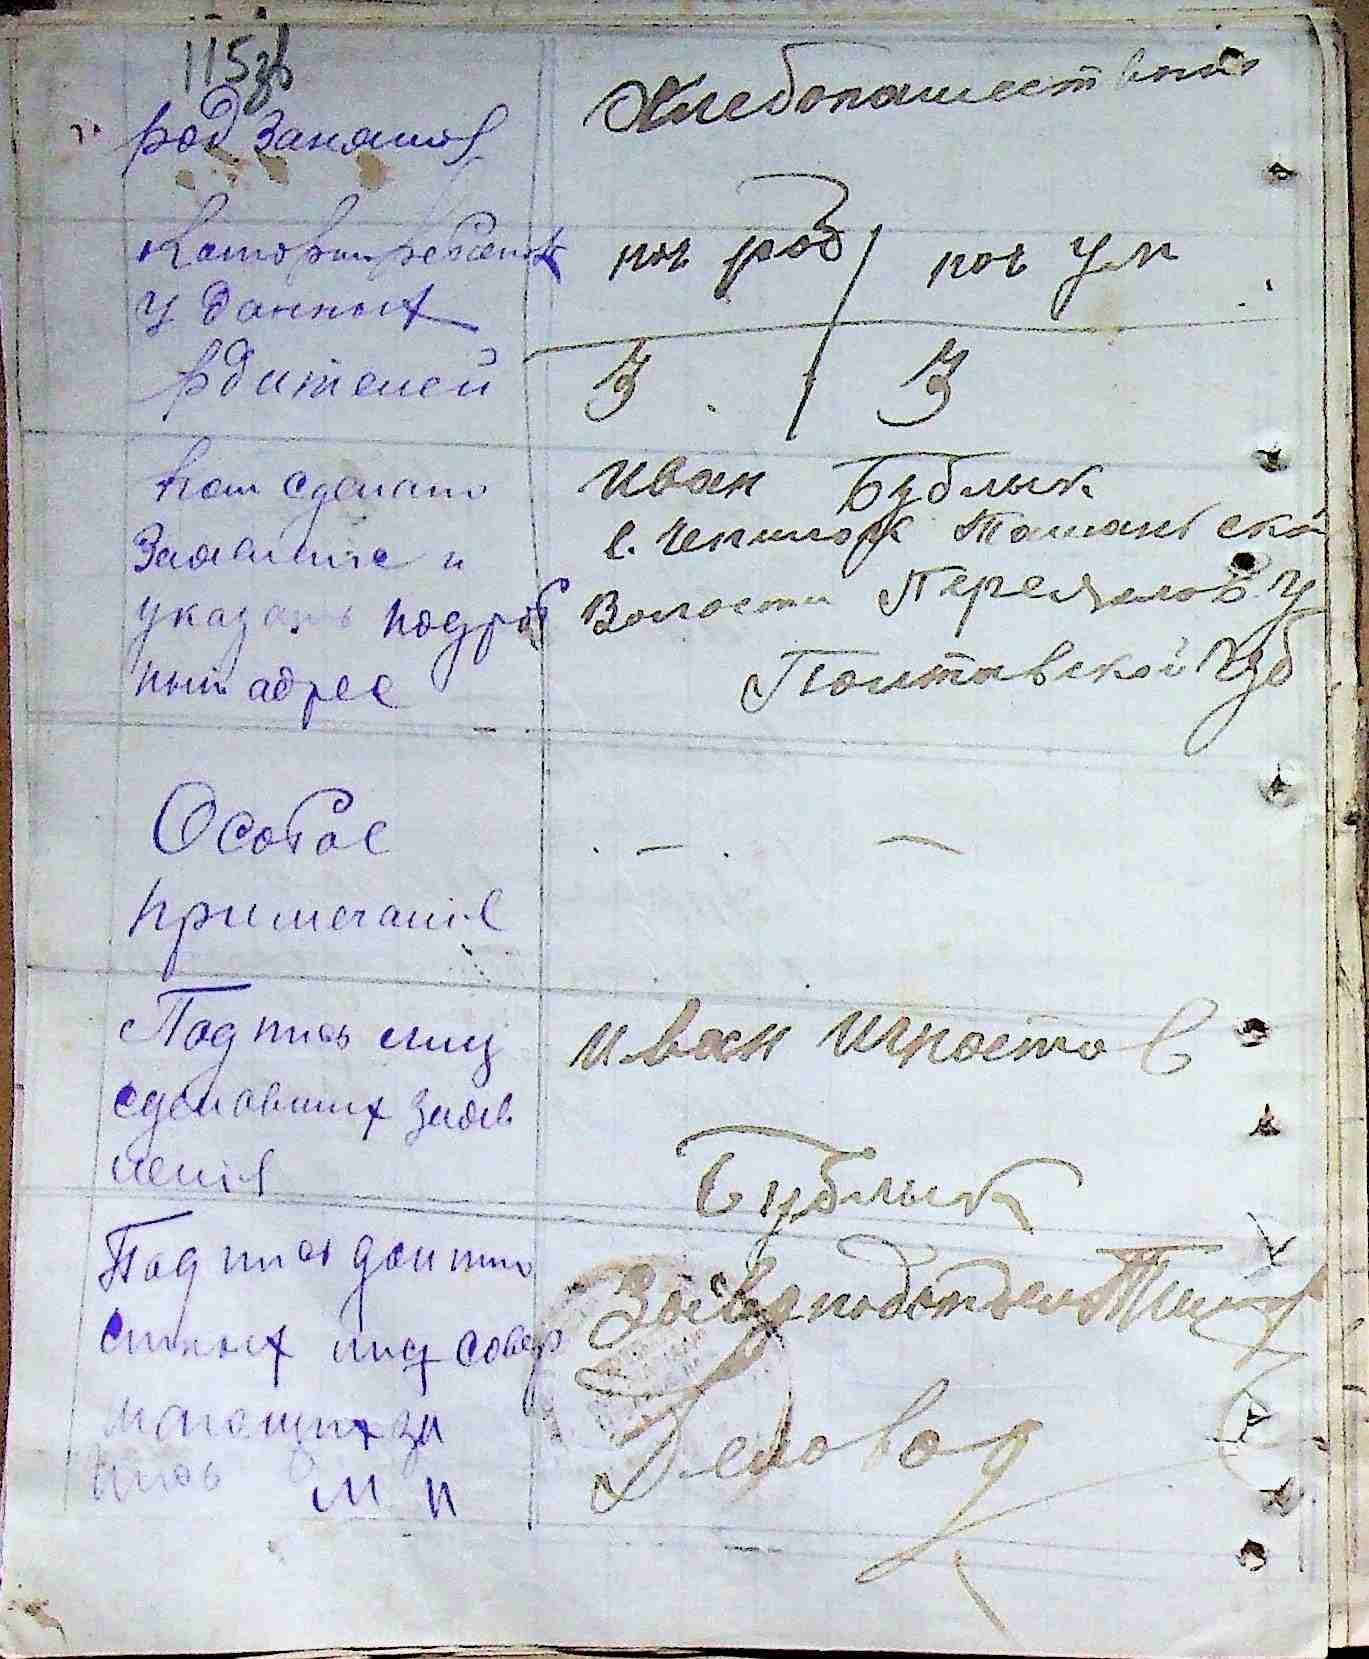 115зв
род занятия
Хлебопашество
Которым ребенок
у данных
рдителей
пол род / пол ум
3 / 3
кем сделано
Заявленіе и
указать подроб
ный адрес
Иван Бублык
с. Чепилорг Ташанской
Волости Переяслов У
Полтавской Губ
Особое
примечаніе
— —
Подпись лиц
сделавших заяв
ленія
Иван Игнатов
Бублык
Подпись должно
стных лиц совер
шающих за
пись М П
Завподотделом
Деловод